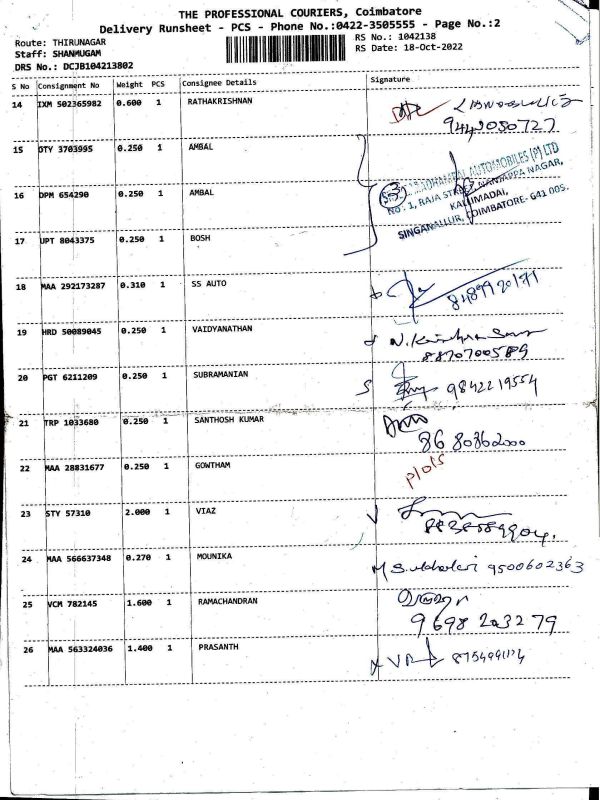 THE PROFESSIONAL COURIERS, Coimbatore
Delivery Runsheet - PCS - Phone No.:0422-3505555 - Page No.:2
Route: THIRUNAGAR
RS No.: 1042138
Staff: SHANMUGAM
RS Date: 18-Oct-2022
DRS No.: DCJB104213802
S No Consignment No Weight PCS Consignee Details Signature
14 IXM 502365982 0.600 1 RATHAKRISHNAN
9443050727
15 DTY 3703995 0.250 1 AMBAL
16 DPM 654290 0.250 1 AMBAL
AUTOMOBILES (P) LTD
NO: 1, RAJA STREET, NANJAPPA NAGAR,
KALLIMADAI,
SINGANALLUR, COIMBATORE- 641 005.
17 UPT 8043375 0.250 1 BOSH
18 MAA 292173287 0.310 1 SS AUTO
8489920171
19 HRD 50089045 0.250 1 VAIDYANATHAN
8870700589
20 PGT 6211209 0.250 1 SUBRAMANIAN
9842219554
21 TRP 1033680 0.250 1 SANTHOSH KUMAR
8680362000
22 MAA 28831677 0.250 1 GOWTHAM
23 STY 57310 2.000 1 VIAZ
24 MAA 566637348 0.270 1 MOUNIKA
9500602363
25 VCM 782145 1.600 1 RAMACHANDRAN
9698203279
26 MAA 563324036 1.400 1 PRASANTH